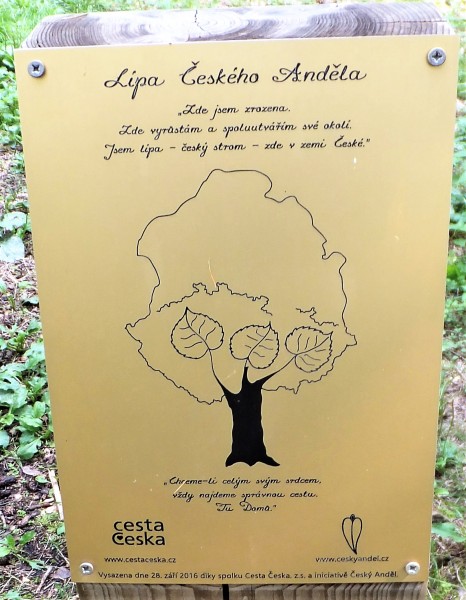 Lípa Českého Anděla
„Zde jsem zrozena.
Zde vyrůstám a spoluutvářím své okolí.
Jsem lípa – český strom – zde v zemi České."
„Chceme-li celým svým srdcem,
vždy najdeme správnou cestu.
Tu Domů."
cesta
Česka
www.cestaceska.cz
www.ceskyandel.cz
Vysazena dne 28. září 2016 díky spolku Cesta Česka, z.s. a iniciativě Český Anděl.